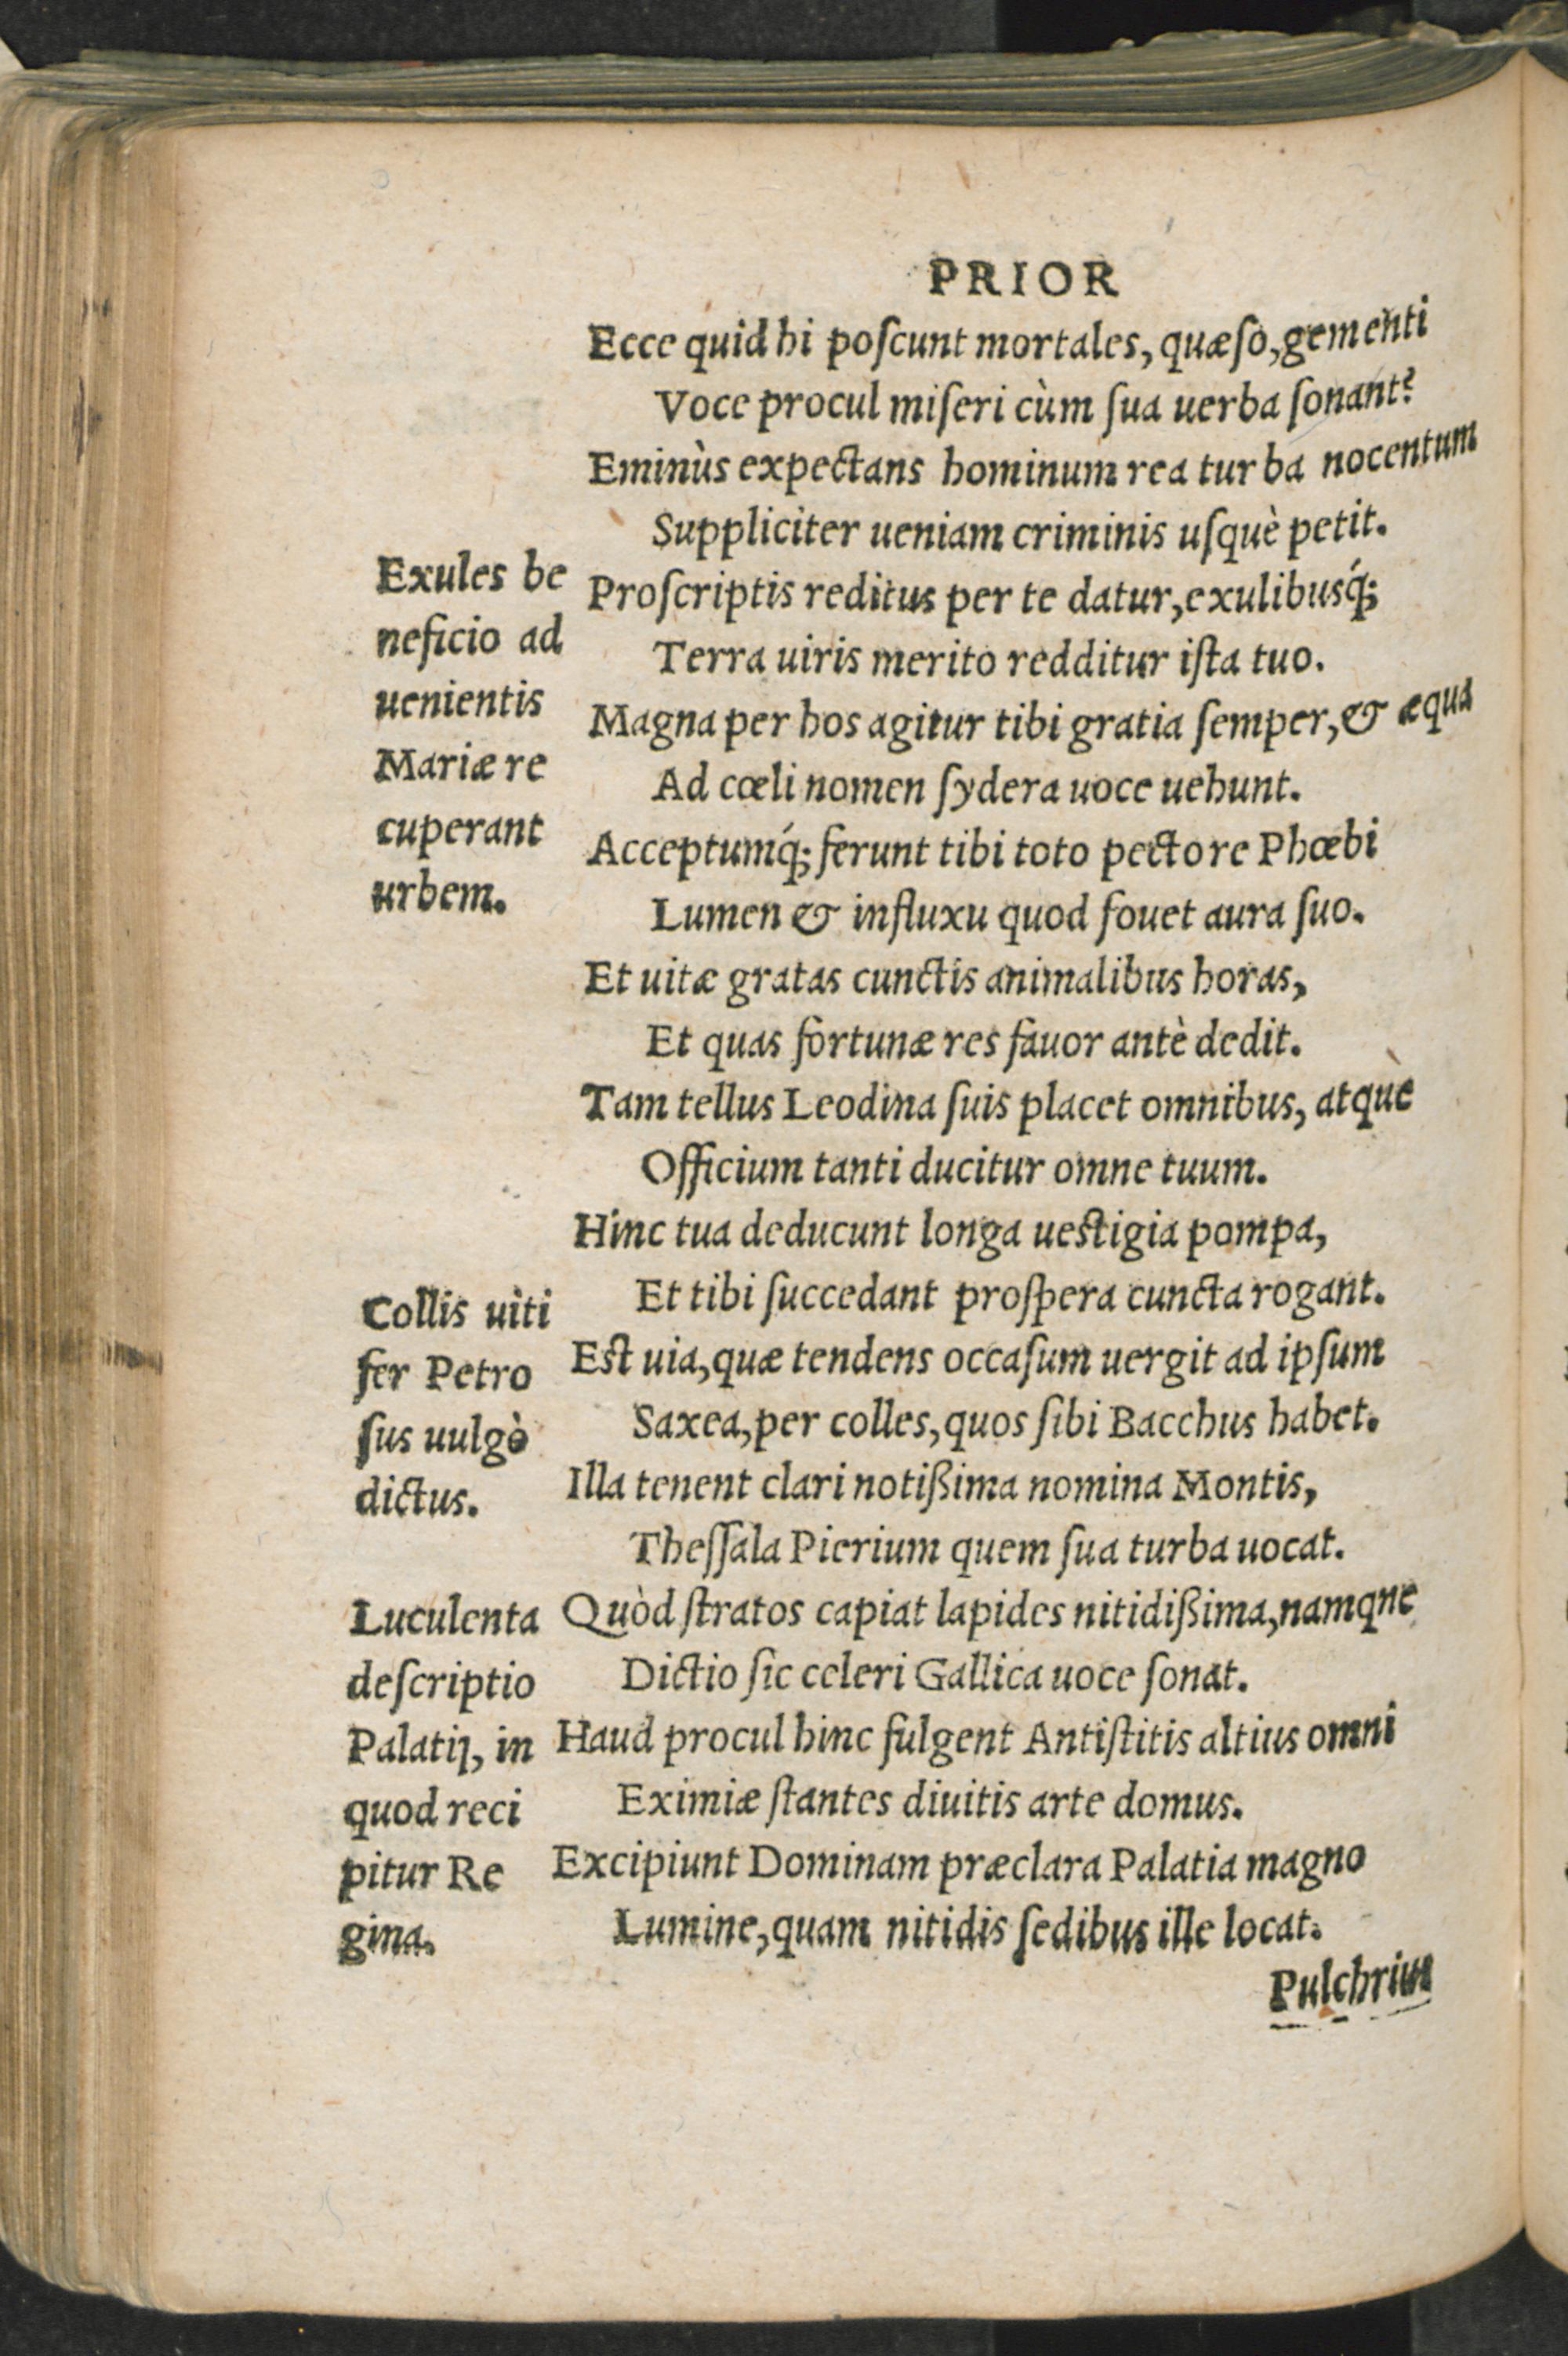 PRIOR
Ecce quid hi poſcunt mortales, quæſo, gementi
Voce procul miſeri cùm ſua uerba ſonant?
Eminùs expectans hominum rea turba nocentum
Suppliciter ueniam criminis uſquè petit.
Exules be
neficio ad
uenientis
Mariæ re
cuperant
urbem.
Proſcriptis reditus per te datur, exulibusq́;
Terra uiris merito redditur iſta tuo.
Magna per hos agitur tibi gratia ſemper, & æqua
Ad cœli nomen ſydera uoce uehunt.
Acceptumq́; ferunt tibi toto pectore Phœbi
Lumen & influxu quod fouet aura ſuo.
Et uitæ gratas cunctis animalibus horas,
Et quas fortunæ res fauor antè dedit.
Tam tellus Leodina ſuis placet omnibus, atquè
Officium tanti ducitur omne tuum.
Hinc tua deducunt longa ueſtigia pompa,
Et tibi ſuccedant proſpera cuncta rogant.
Collis uiti
fer Petro
ſus uulgò
dictus.
Eſt uia, quæ tendens occaſum uergit ad ipſum
Saxea, per colles, quos ſibi Bacchus habet.
Illa tenent clari notißima nomina Montis,
Theſſala Pierium quem ſua turba uocat.
Luculenta
deſcriptio
Palatij, in
quod reci
pitur Re
gina.
Quòd ſtratos capiat lapides nitidißima, namqne
Dictio ſic celeri Gallica uoce ſonat.
Haud procul hinc fulgent Antiſtitis altius omni
Eximiæ ſtantes diuitis arte domus.
Excipiunt Dominam præclara Palatia magno
Lumine, quam nitidis ſedibus ille locat.
Pulchrius